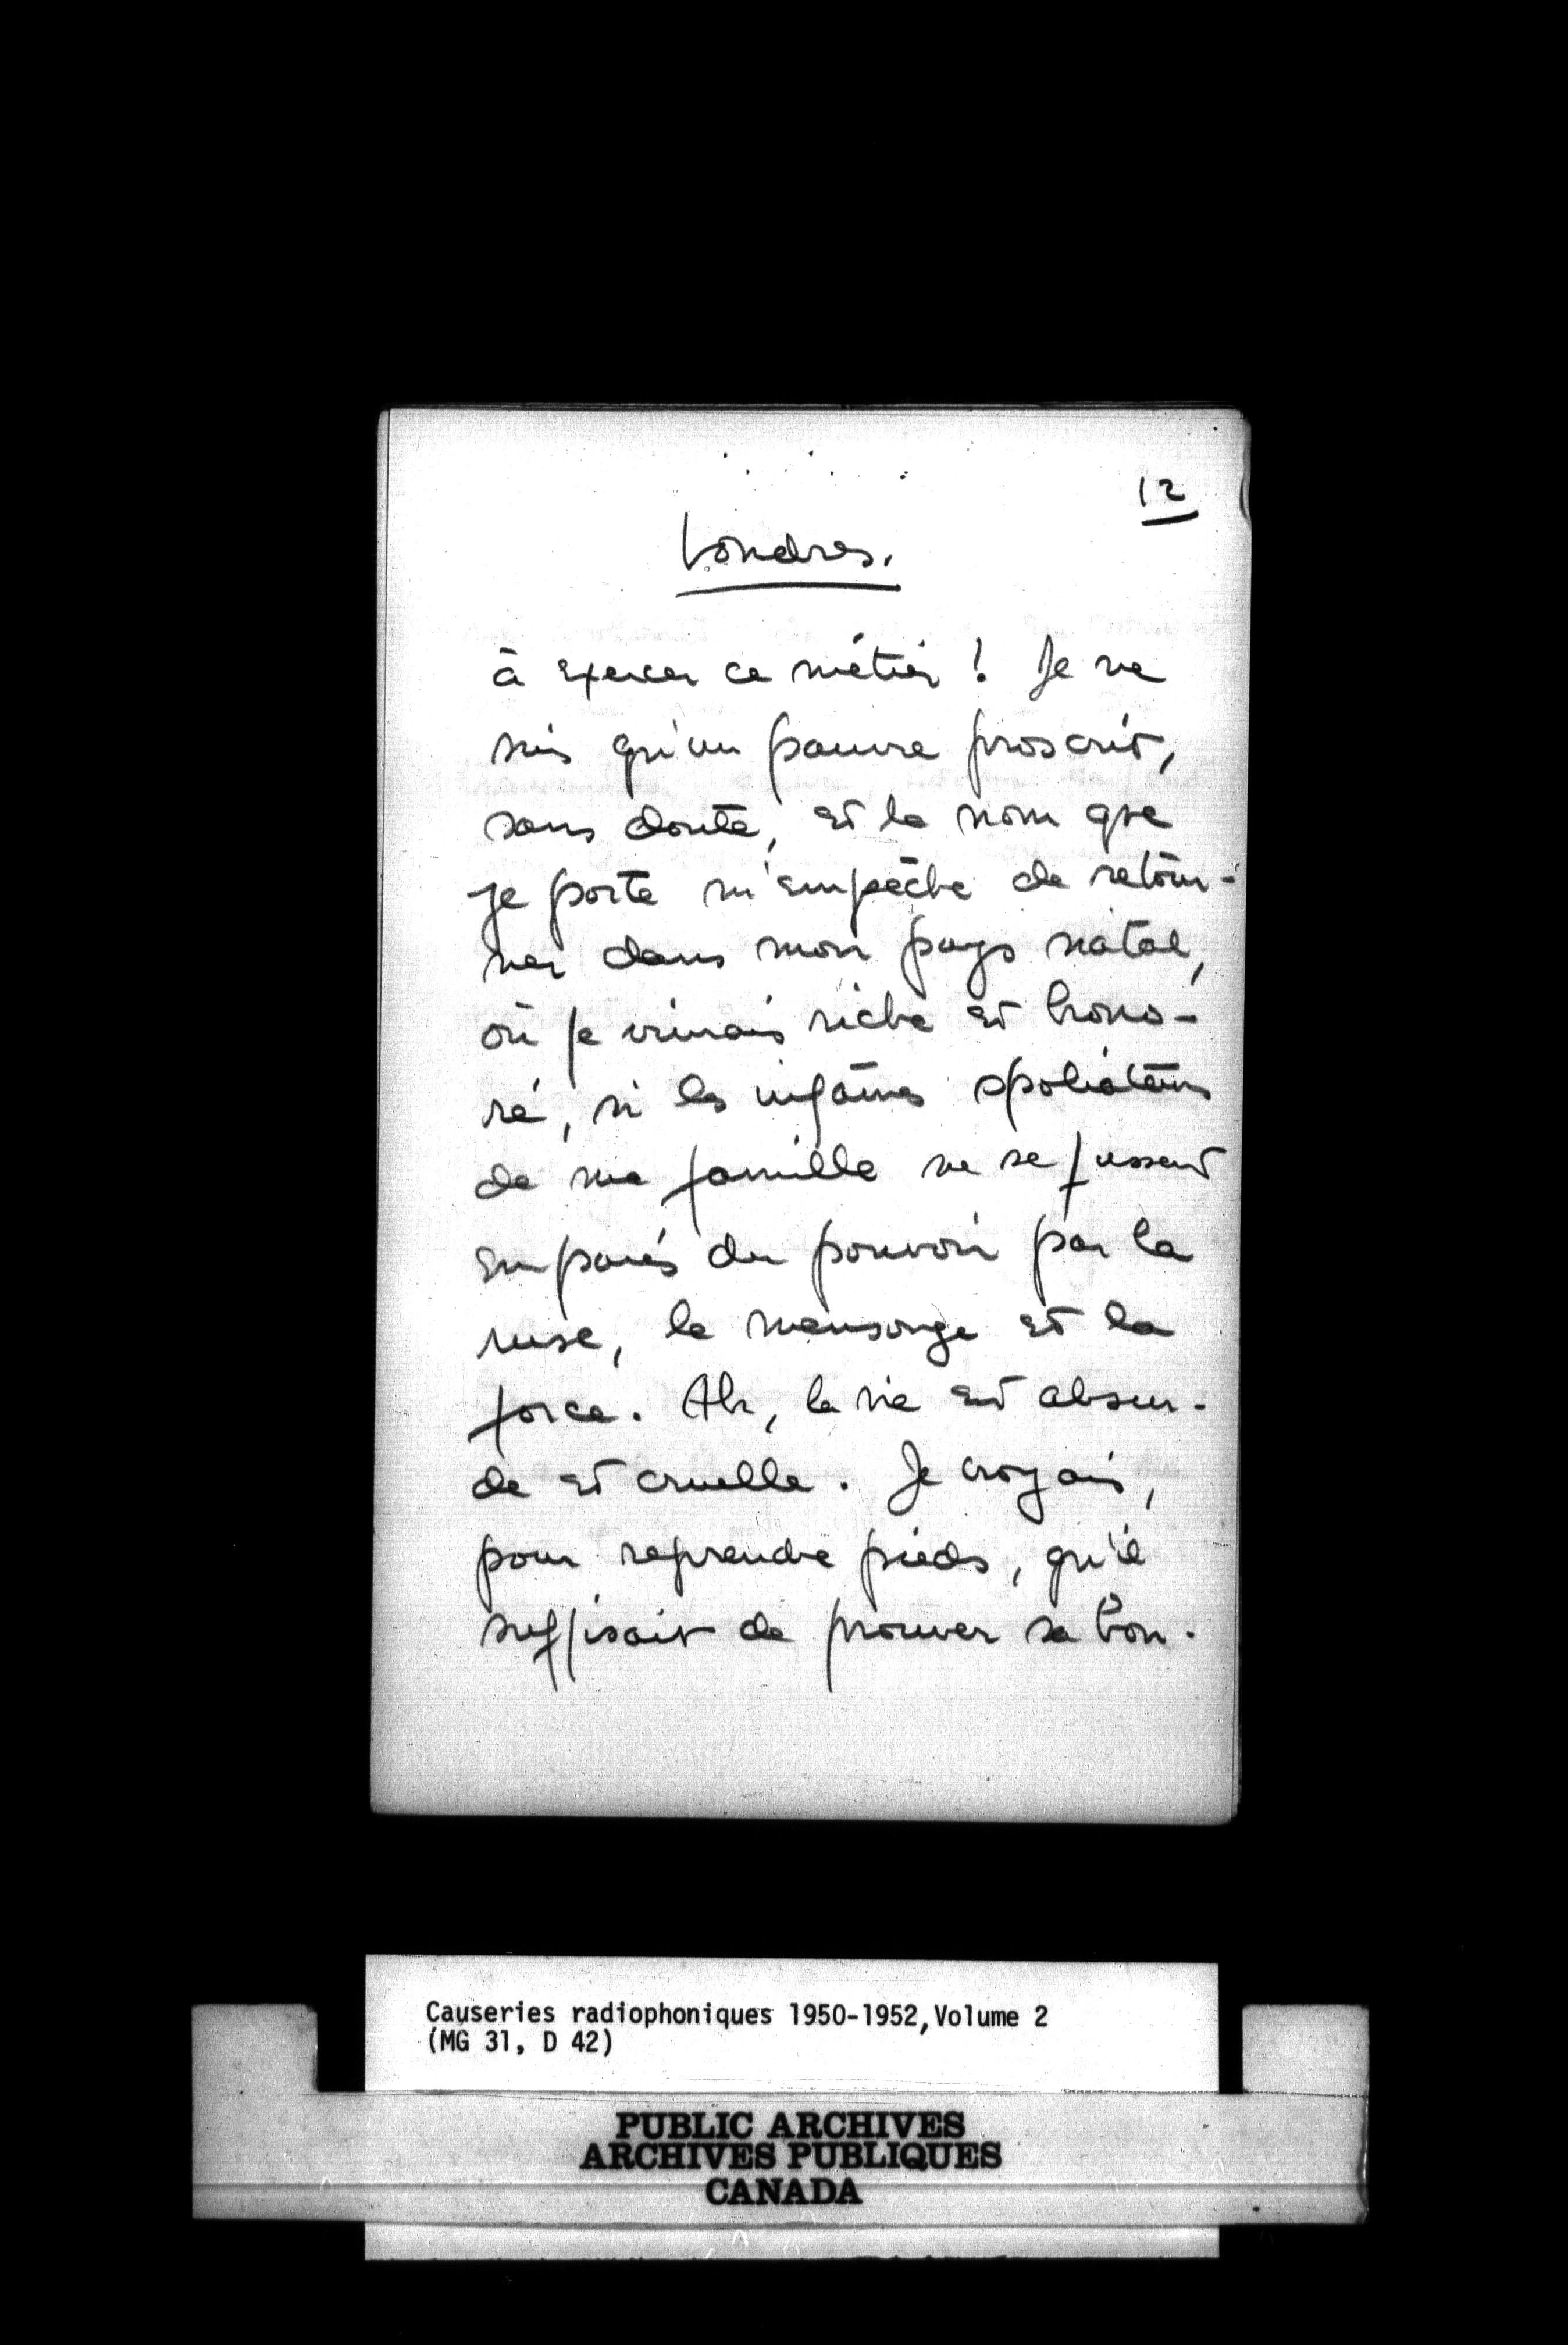 12
Londres.
à exercer ce métier ! Je ne
suis qu'un pauvre proscrit,
sans doute, et le nom que
je porte m'empêche de retour-
ner dans mon pays natal,
où je vivrais riche et hono-
ré, si les infâmes spoliateurs
de ma famille ne se fussent
emparés du pouvoir par la
ruse, le mensonge et la
force. Ah, la vie est absur-
de et cruelle. Je croyais,
pour reprendre pieds, qu'il
suffisait de prouver sa bon-
Causeries radiophoniques 1950-1952, Volume 2
(MG 31, D 42)
PUBLIC ARCHIVES
ARCHIVES PUBLIQUES
CANADA